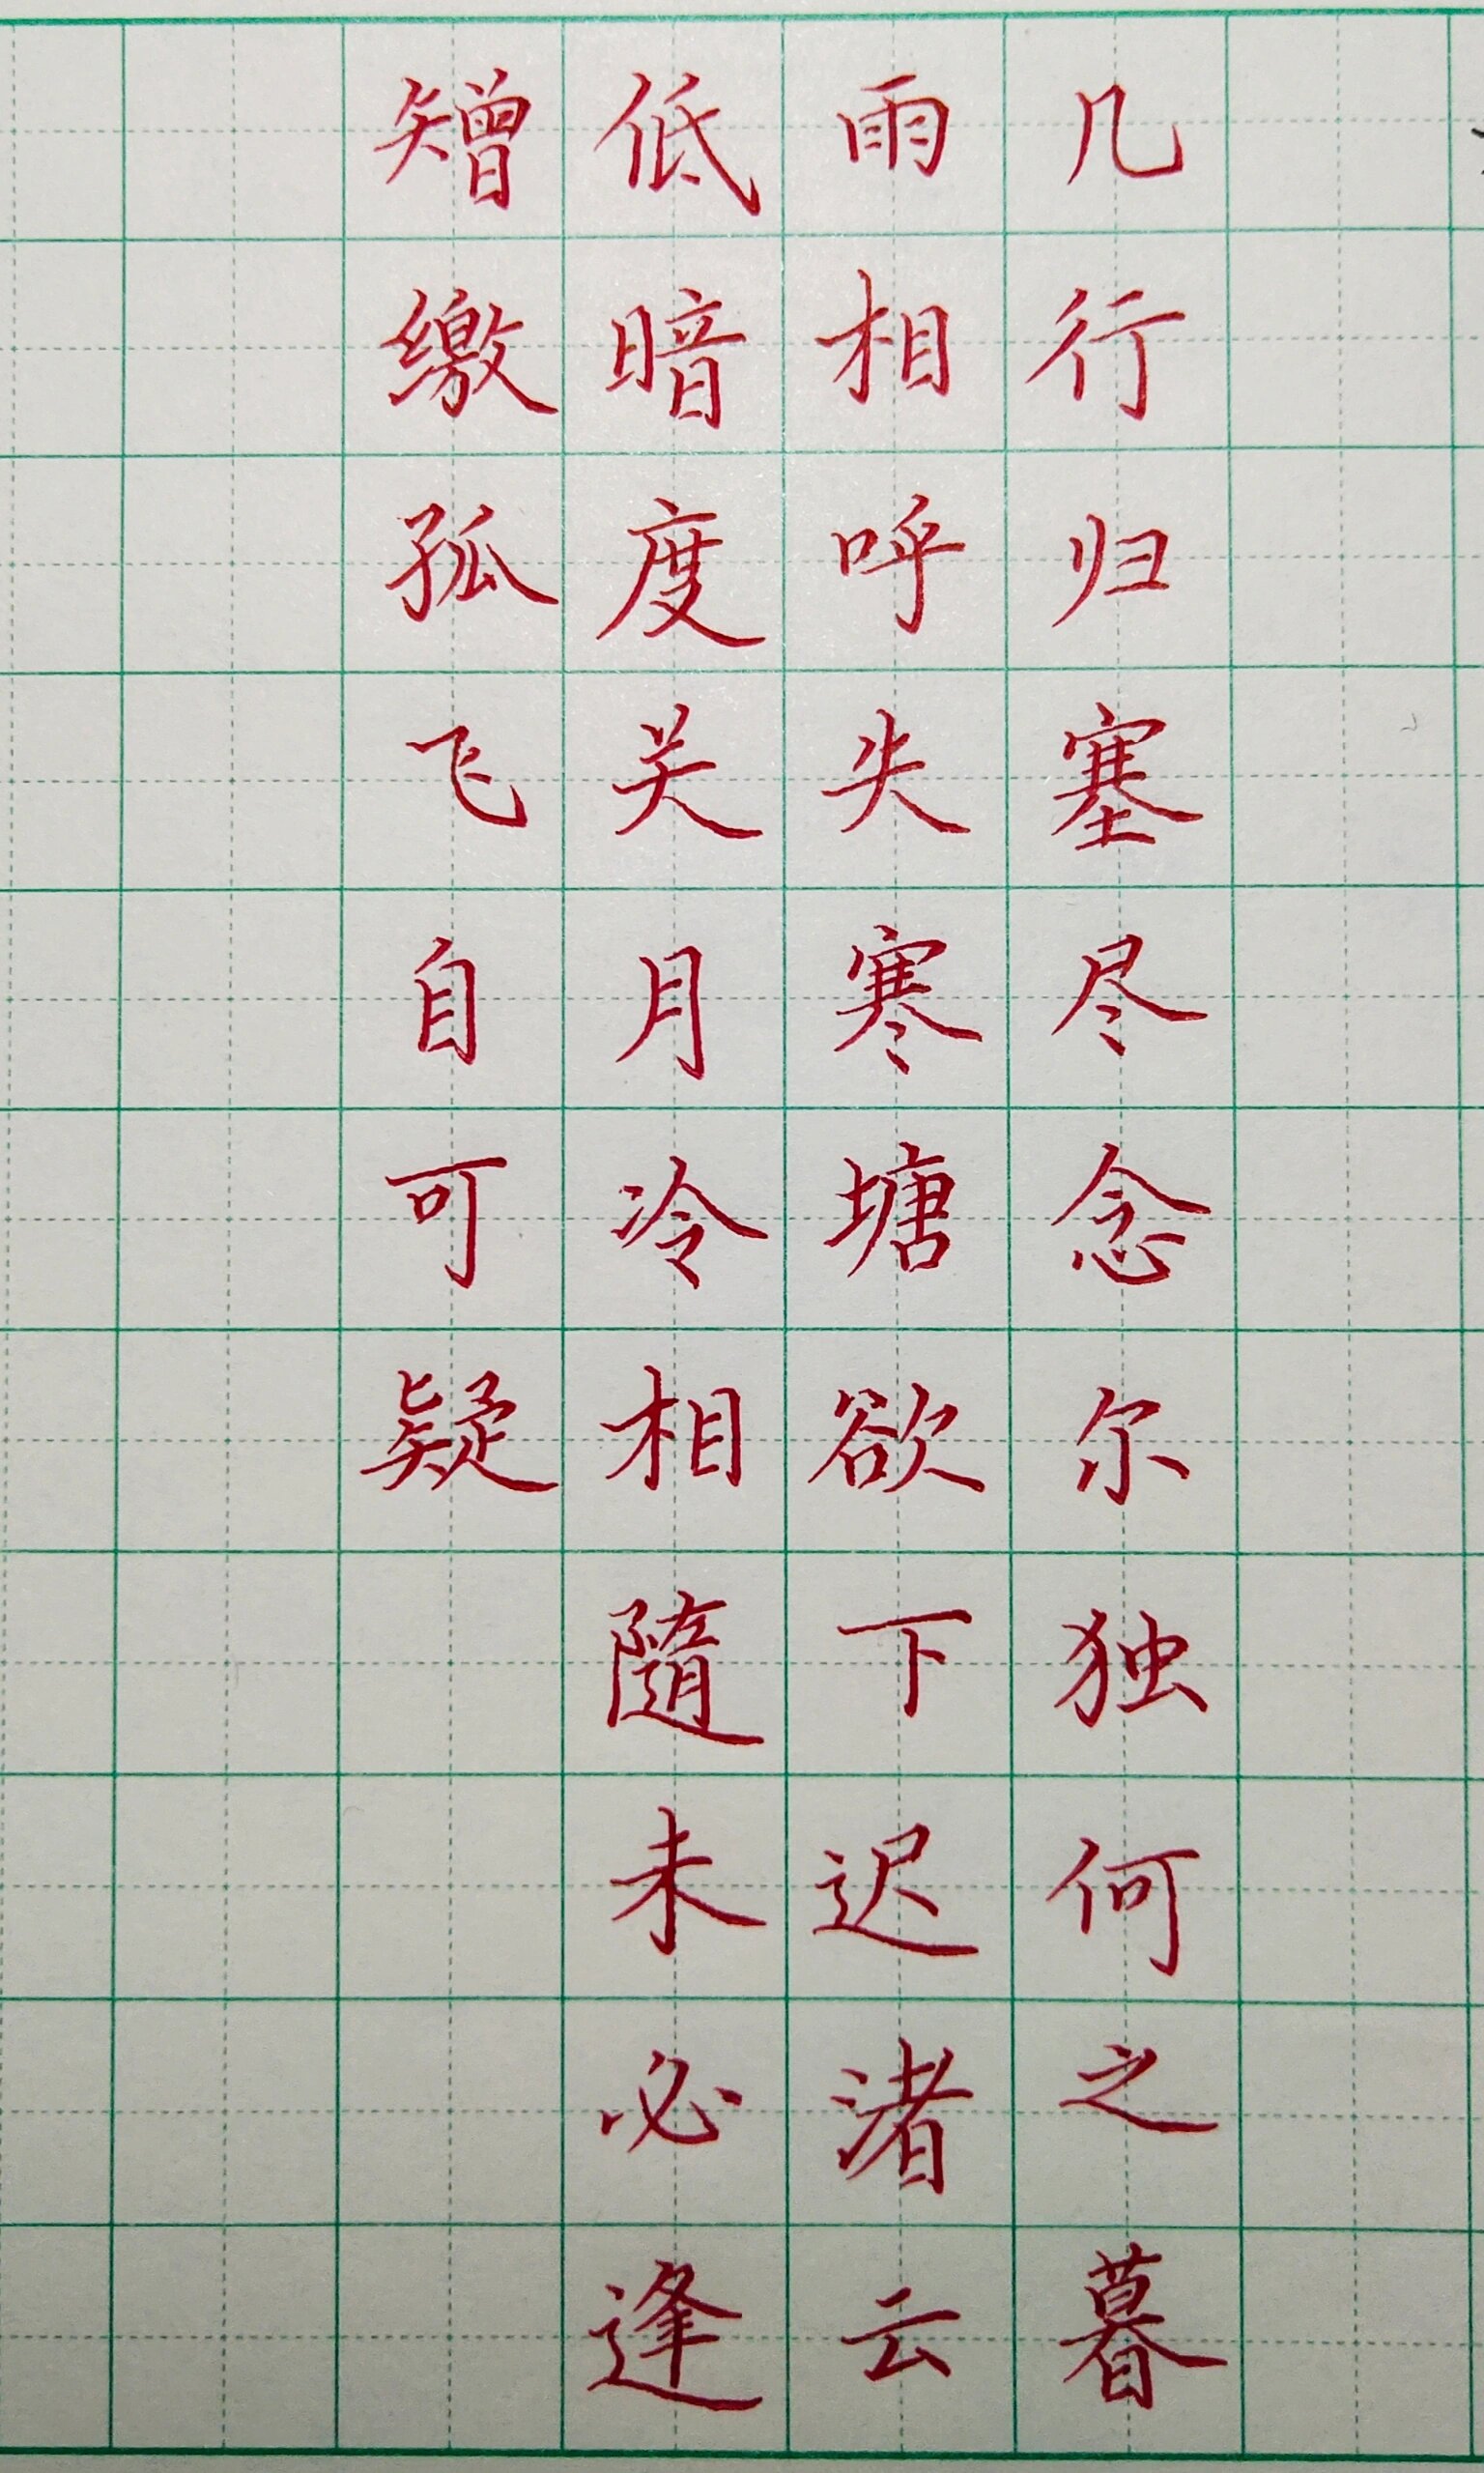 几行归塞尽念尔独何之暮
雨相呼失寒塘欲下迟渚云
低暗度关月冷相隨未必逢
矰缴孤飞自可疑